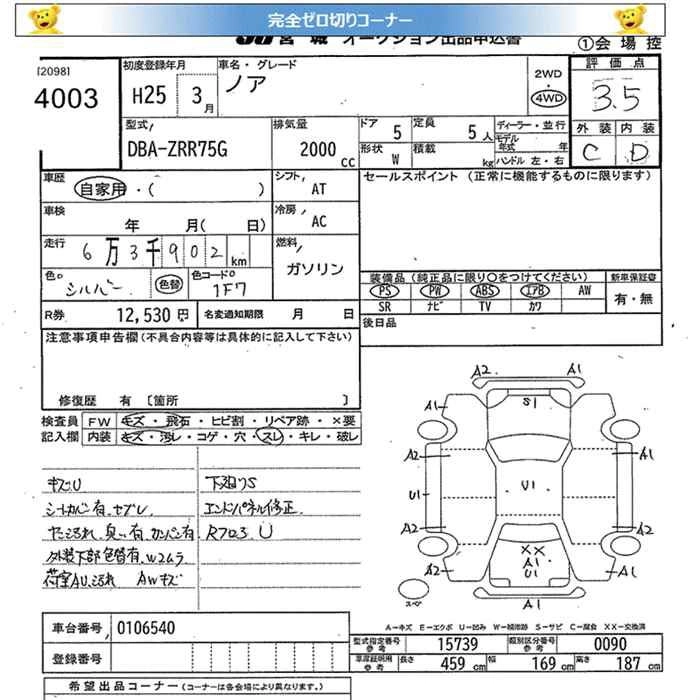 完全ゼロ切りコーナー
JU宮城 オークション出品申込書 ①会場控
[2098] 4003
初度登録年月 H25 3月
車名・グレード ノア
2WD・4WD
評価点 3.5
外装 C 内装 D
型式 DBA-ZRR75G
排気量 2000cc
ドア 5 定員 5人
形状 W 積載 kg
ディーラー・並行
モデル年式 年
ハンドル 左・右
車歴 自家用・( )
シフト AT
車検 年 月(日)
冷房 AC
走行 6万3千902km
燃料 ガソリン
色 シルバー 色替 色コード 1F7
R券 12,530円 名変通知期限 月 日
セールスポイント (正常に機能するものに限ります)
装備品(純正品に限り○をつけてください) 新車保証書
PS PW ABS エアB AW 有・無
SR ナビ TV カワ
後日品
注意事項申告欄(不具合内容等は具体的に記入して下さい)
修復歴 有〔箇所 〕
検査員記入欄 FW キズ・飛石・ヒビ割・リペア跡・×要
内装 キズ・汚レ・コゲ・穴・スレ・キレ・破レ
キズU 下廻りS
シートカバー有、セブレ エンドパネル修正
R703 U
外装下部色替有、W2ムラ
荷室AU、汚れ AWキズ
A2 A1
A1 S1 A1
A2 A1
U1 U1 U1
A2 A2
A2 XX A1 U1 A1
A1
スペア
A-キズ E-エクボ U-凹み W-補修跡 S-サビ C-腐食 XX-交換済
車台番号 0106540
登録番号
型式指定番号 参考 15739 類別区分番号 参考 0090
車庫証明用 参考 長さ 459cm 幅 169cm 高さ 187cm
希望出品コーナー(コーナーは各会場により異なります。)